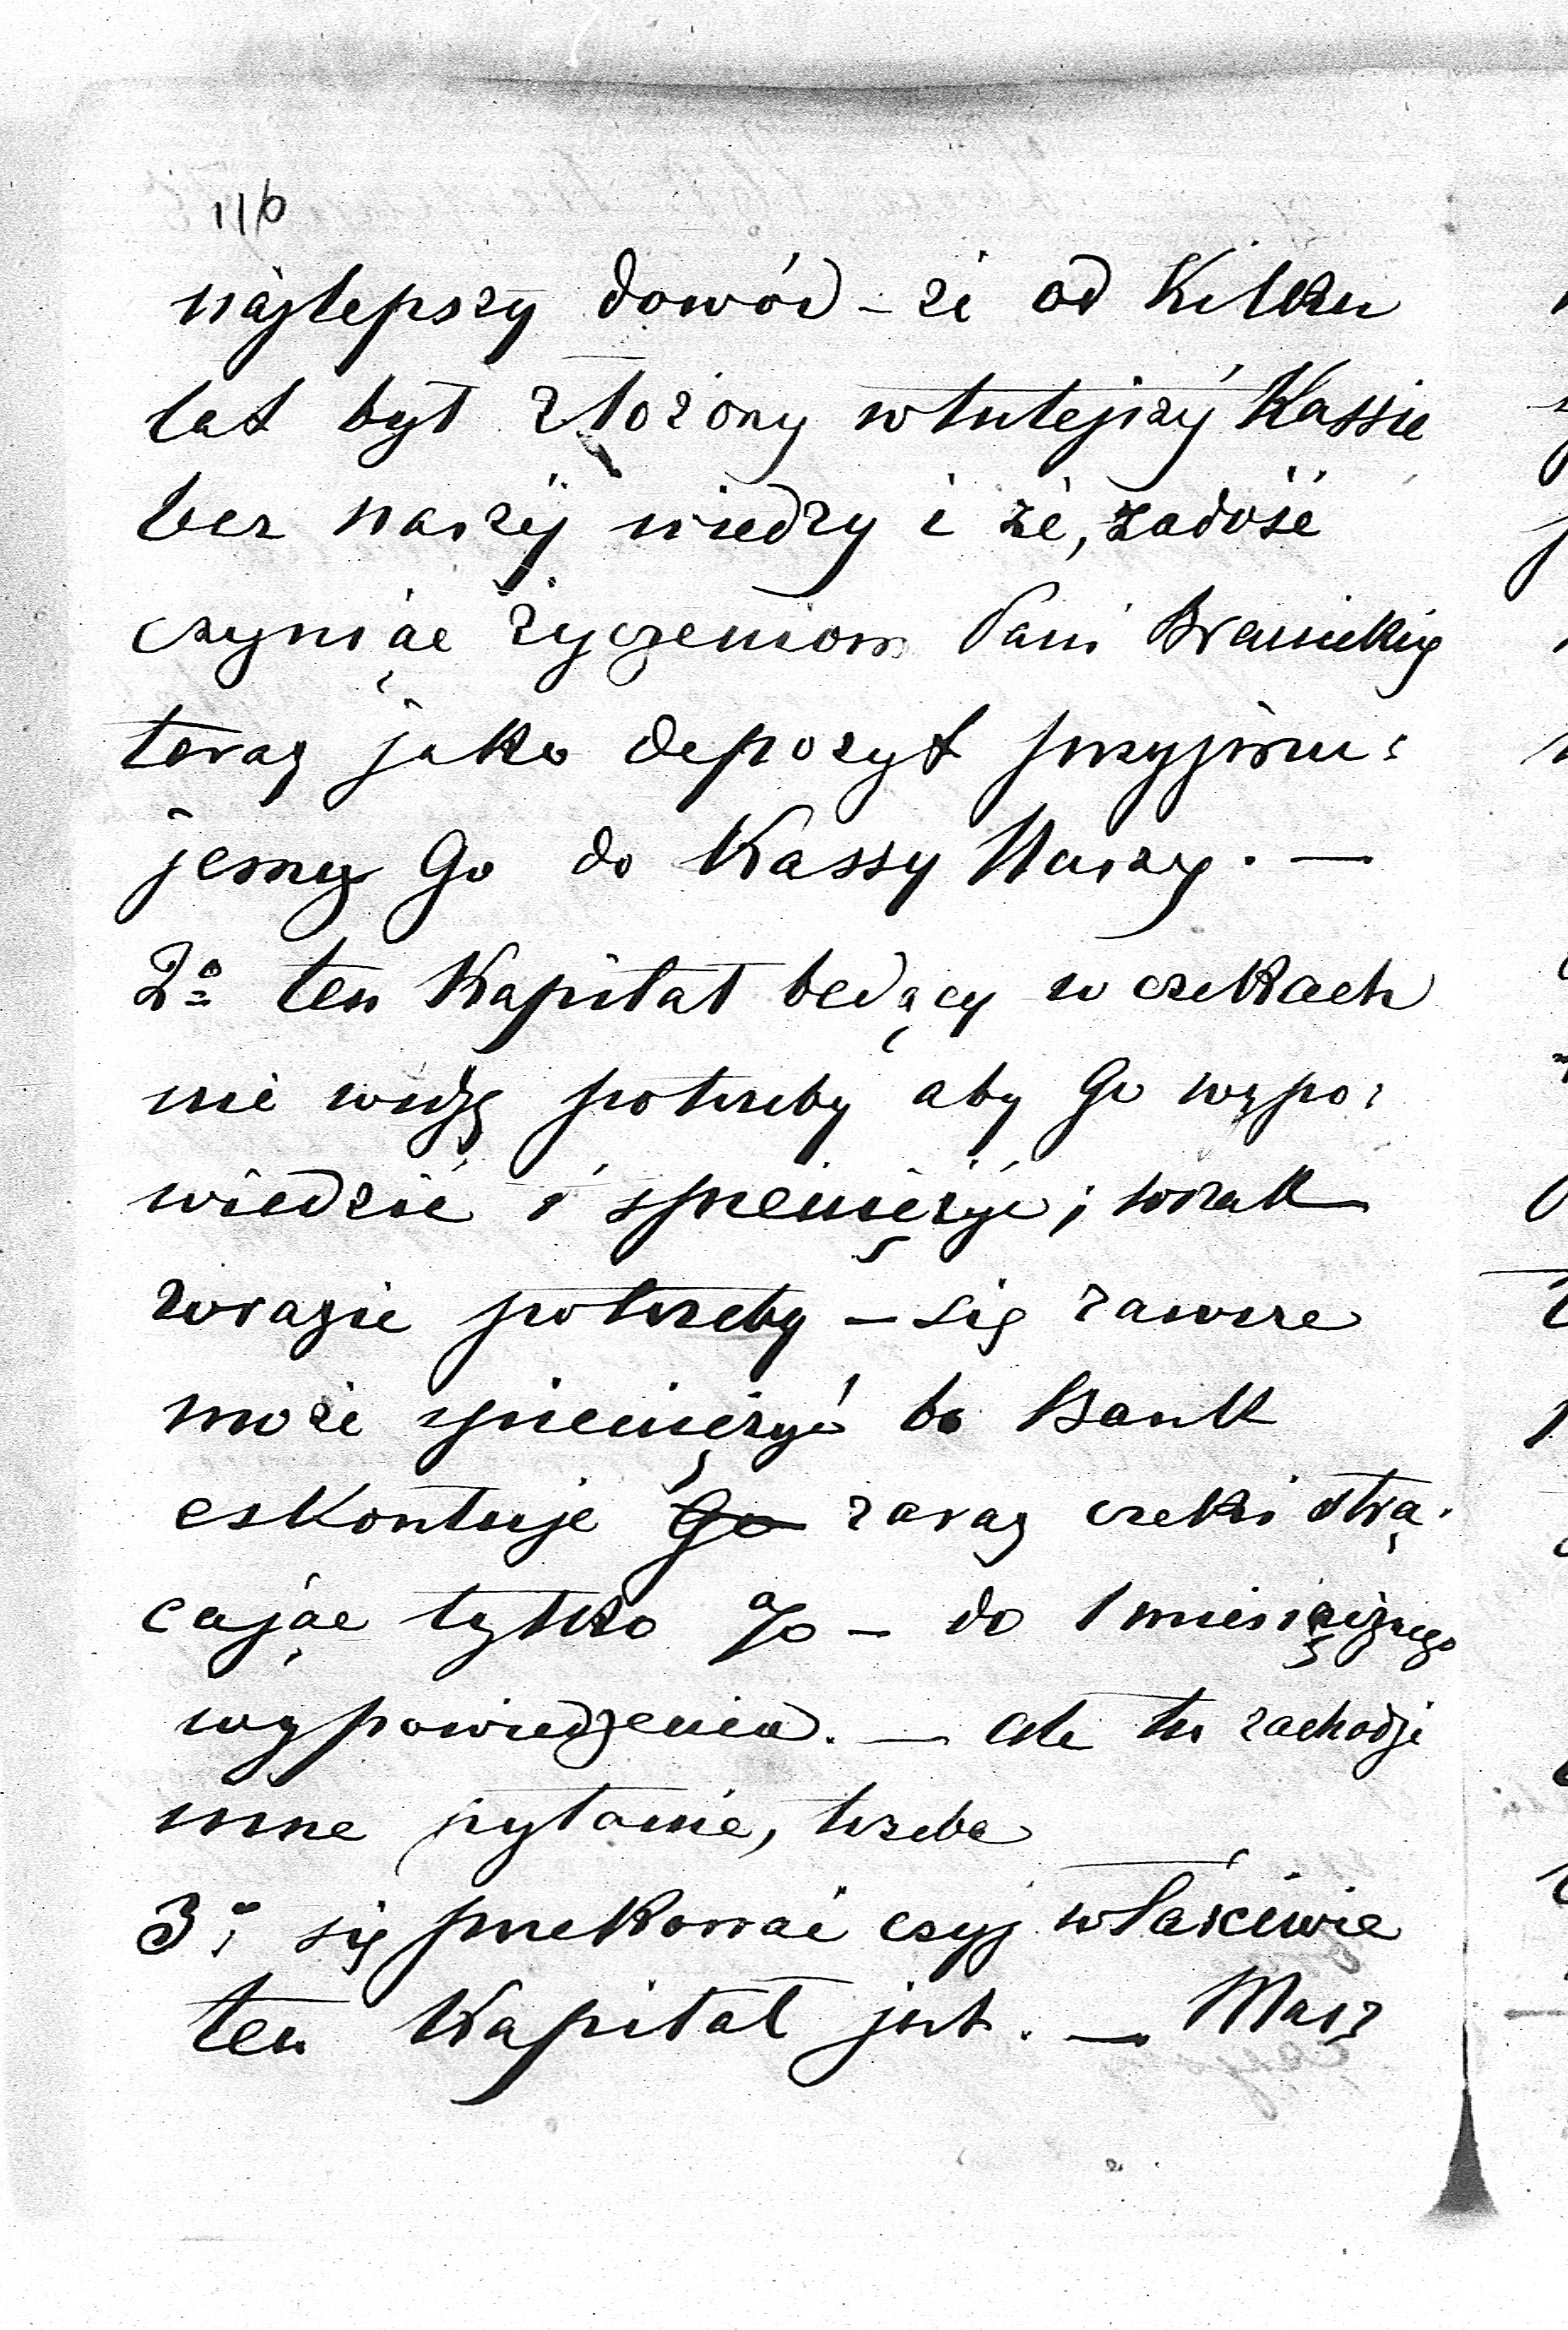 116
najlepszy dowód – że od Kilku
lat był złożony w tutejszéj Kassie
bez naszéj wiedzy i że, zadość
czyniąc życzeniom Pani Branickiej
teraz jako depozyt przyjmu:
jemy Go do Kassy Naszej. —
2º ten Kapitał będący w czekach
nie widzę potrzeby aby Go wypo:
wiedzić i spieniężyć; wszak
w razie potrzeby – się zawsze
może spieniężyć bo Bank
eskontuje Go zaraz czeki strą:
cając tylko % – do 1 miesięcznego
wypowiedzenia. — ale tu zachodzi
inne pytanie, trzeba
3º się przekonać czyj właściwie
ten Kapitał jest. — Masz